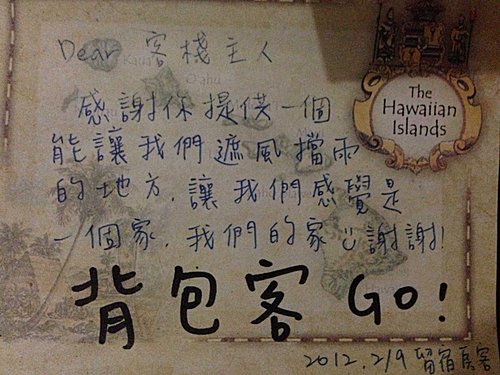 Dear 客棧主人
感謝你提供一個
能讓我們遮風擋雨
的地方,讓我們感覺是
一個家,我們的家謝謝!
背包客 GO!
2012.2/9 留宿房客
The
Hawaiian
Islands
Kaua
O'ahu